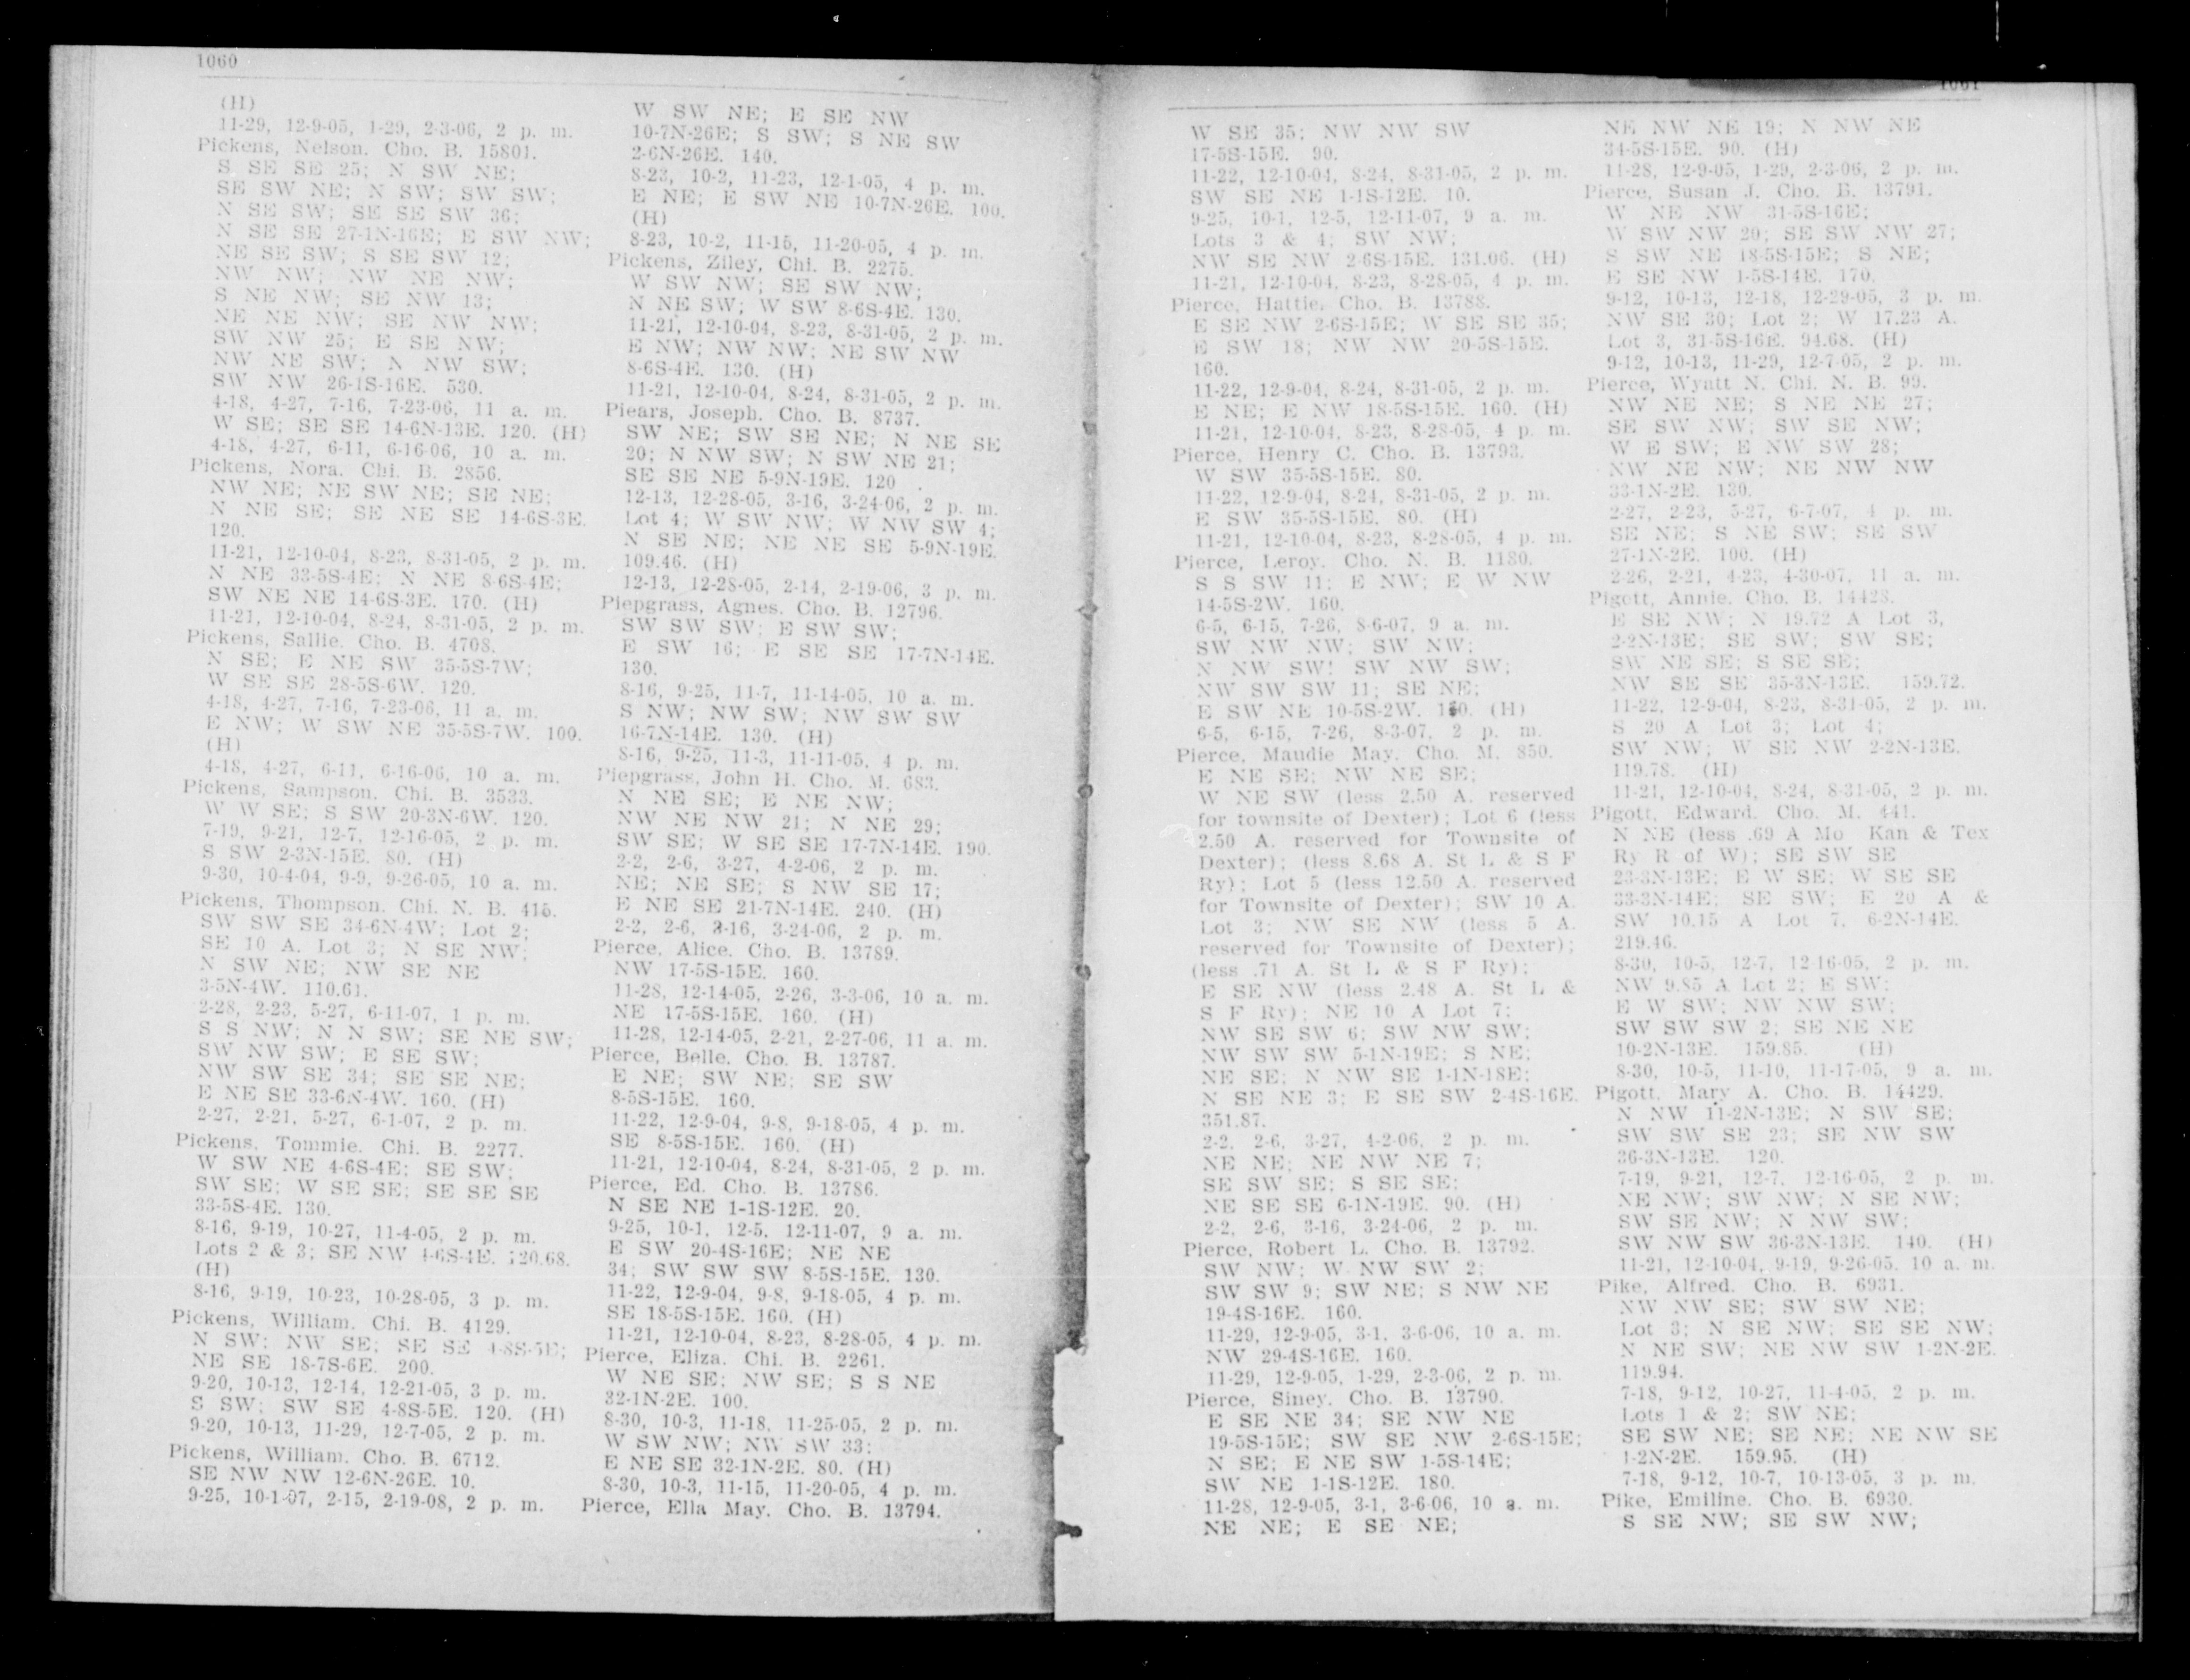 1060
(H)
11-29, 12-9-05, 1-29, 2-3-06, 2 p. m.
Pickens, Nelson. Cho. B. 15801.
S SE SE 25; N SW NE;
SE SW NE; N SW; SW SW;
N SE SW; SE SE SW 36;
N SE SE 27-1N-16E; E SW NW;
NE SE SW; S SE SW 12;
NW NW; NW NE NW;
S NE NW; SE NW 13;
NE NE NW; SE NW NW;
SW NW 25; E SE NW;
NW NE SW; N NW SW;
SW NW 26-1S-16E. 530.
4-18, 4-27, 7-16, 7-23-06, 11 a. m.
W SE; SE SE 14-6N-13E. 120. (H)
4-18, 4-27, 6-11, 6-16-06, 10 a. m.
Pickens, Nora. Chi. B. 2856.
NW NE; NE SW NE; SE NE;
N NE SE; SE NE SE 14-6S-3E.
120.
11-21, 12-10-04, 8-23, 8-31-05, 2 p. m.
N NE 33-5S-4E; N NE 8-6S-4E;
SW NE NE 14-6S-3E. 170. (H)
11-21, 12-10-04, 8-24, 8-31-05, 2 p. m.
Pickens, Sallie. Cho. B. 4708.
N SE; E NE SW 35-5S-7W;
W SE SE 28-5S-6W. 120.
4-18, 4-27, 7-16, 7-23-06, 11 a. m.
E NW; W SW NE 35-5S-7W. 100.
(H)
4-18, 4-27, 6-11, 6-16-06, 10 a. m.
Pickens, Sampson. Chi. B. 3533.
W W SE; S SW 20-3N-6W. 120.
7-19, 9-21, 12-7, 12-16-05, 2 p. m.
S SW 2-3N-15E. 80. (H)
9-30, 10-4-04, 9-9, 9-26-05, 10 a. m.
Pickens, Thompson. Chi. N. B. 415.
SW SW SE 34-6N-4W; Lot 2;
SE 10 A. Lot 3; N SE NW;
N SW NE; NW SE NE
3-5N-4W. 110.61.
2-28, 2-23, 5-27, 6-11-07, 1 p. m.
S S NW; N N SW; SE NE SW;
SW NW SW; E SE SW;
NW SW SE 34; SE SE NE;
E NE SE 33-6N-4W. 160. (H)
2-27, 2-21, 5-27, 6-1-07, 2 p. m.
Pickens, Tommie. Chi. B. 2277.
W SW NE 4-6S-4E; SE SW;
SW SE; W SE SE; SE SE SE
33-5S-4E. 130.
8-16, 9-19, 10-27, 11-4-05, 2 p. m.
Lots 2 & 3; SE NW 4-6S-4E. 120.68.
(H)
8-16, 9-19, 10-23, 10-28-05, 3 p. m.
Pickens, William. Chi. B. 4129.
N SW; NW SE; SE SE 4-8S-5E;
NE SE 18-7S-6E. 200.
9-20, 10-13, 12-14, 12-21-05, 3 p. m.
S SW; SW SE 4-8S-5E. 120. (H)
9-20, 10-13, 11-29, 12-7-05, 2 p. m.
Pickens, William. Cho. B. 6712.
SE NW NW 12-6N-26E. 10.
9-25, 10-1-07, 2-15, 2-19-08, 2 p. m.
W SW NE; E SE NW
10-7N-26E; S SW; S NE SW
2-6N-26E. 140.
8-23, 10-2, 11-23, 12-1-05, 4 p. m.
E NE; E SW NE 10-7N-26E. 100.
(H)
8-23, 10-2, 11-15, 11-20-05, 4 p. m.
Pickens, Ziley, Chi. B. 2275.
W SW NW; SE SW NW;
N NE SW; W SW 8-6S-4E. 130.
11-21, 12-10-04, 8-23, 8-31-05, 2 p. m.
E NW; NW NW; NE SW NW
8-6S-4E. 130. (H)
11-21, 12-10-04, 8-24, 8-31-05, 2 p. m.
Piears, Joseph. Cho. B. 8737.
SW NE; SW SE NE; N NE SE
20; N NW SW; N SW NE 21;
SE SE NE 5-9N-19E. 120
12-13, 12-28-05, 3-16, 3-24-06, 2 p. m.
Lot 4; W SW NW; W NW SW 4;
N SE NE; NE NE SE 5-9N-19E.
109.46. (H)
12-13, 12-28-05, 2-14, 2-19-06, 3 p. m.
Piepgrass, Agnes. Cho. B. 12796.
SW SW SW; E SW SW;
E SW 16; E SE SE 17-7N-14E.
130.
8-16, 9-25, 11-7, 11-14-05, 10 a. m.
S NW; NW SW; NW SW SW
16-7N-14E. 130. (H)
8-16, 9-25, 11-3, 11-11-05, 4 p. m.
Piepgrass, John H. Cho. M. 683.
N NE SE; E NE NW;
NW NE NW 21; N NE 29;
SW SE; W SE SE 17-7N-14E. 190.
2-2, 2-6, 3-27, 4-2-06, 2 p. m.
NE; NE SE; S NW SE 17;
E NE SE 21-7N-14E. 240. (H)
2-2, 2-6, 3-16, 3-24-06, 2 p. m.
Pierce, Alice. Cho. B. 13789.
NW 17-5S-15E. 160.
11-28, 12-14-05, 2-26, 3-3-06, 10 a. m.
NE 17-5S-15E. 160. (H)
11-28, 12-14-05, 2-21, 2-27-06, 11 a. m.
Pierce, Belle. Cho. B. 13787.
E NE; SW NE; SE SW
8-5S-15E. 160.
11-22, 12-9-04, 9-8, 9-18-05, 4 p. m.
SE 8-5S-15E. 160. (H)
11-21, 12-10-04, 8-24, 8-31-05, 2 p. m.
Pierce, Ed. Cho. B. 13786.
N SE NE 1-1S-12E. 20.
9-25, 10-1, 12-5, 12-11-07, 9 a. m.
E SW 20-4S-16E; NE NE
34; SW SW SW 8-5S-15E. 130.
11-22, 12-9-04, 9-8, 9-18-05, 4 p. m.
SE 18-5S-15E. 160. (H)
11-21, 12-10-04, 8-23, 8-28-05, 4 p. m.
Pierce, Eliza. Chi. B. 2261.
W NE SE; NW SE; S S NE
32-1N-2E. 100.
8-30, 10-3, 11-18, 11-25-05, 2 p. m.
W SW NW; NW SW 33;
E NE SE 32-1N-2E. 80. (H)
8-30, 10-3, 11-15, 11-20-05, 4 p. m.
Pierce, Ella May. Cho. B. 13794.
1061
W SE 35; NW NW SW
17-5S-15E. 90.
11-22, 12-10-04, 8-24, 8-31-05, 2 p. m.
SW SE NE 1-1S-12E. 10.
9-25, 10-1, 12-5, 12-11-07, 9 a. m.
Lots 3 & 4; SW NW;
NW SE NW 2-6S-15E. 131.06. (H)
11-21, 12-10-04, 8-23, 8-28-05, 4 p. m.
Pierce, Hattie. Cho. B. 13788.
E SE NW 2-6S-15E; W SE SE 35;
E SW 18; NW NW 20-5S-15E.
160.
11-22, 12-9-04, 8-24, 8-31-05, 2 p. m.
E NE; E NW 18-5S-15E. 160. (H)
11-21, 12-10-04, 8-23, 8-28-05, 4 p. m.
Pierce, Henry C. Cho. B. 13793.
W SW 35-5S-15E. 80.
11-22, 12-9-04, 8-24, 8-31-05, 2 p. m.
E SW 35-5S-15E. 80. (H)
11-21, 12-10-04, 8-23, 8-28-05, 4 p. m.
Pierce, Leroy. Cho. N. B. 1180.
S S SW 11; E NW; E W NW
14-5S-2W. 160.
6-5, 6-15, 7-26, 8-6-07, 9 a. m.
SW NW NW; SW NW;
N NW SW! SW NW SW;
NW SW SW 11; SE NE;
E SW NE 10-5S-2W. (H)
6-5, 6-15, 7-26, 8-3-07, 2 p. m.
Pierce, Maudie May. Cho. M. 850.
E NE SE; NW NE SE;
W NE SW (less 2.50 A. reserved
for townsite of Dexter); Lot 6 (less
2.50 A. reserved for Townsite of
Dexter); (less 8.68 A. St L & S F
Ry); Lot 5 (less 12.50 A. reserved
for Townsite of Dexter); SW 10 A.
Lot 3; NW SE NW (less 5 A.
reserved for Townsite of Dexter);
(less .71 A. St L & S F Ry);
E SE NW (less 2.48 A. St L &
S F Ry); NE 10 A Lot 7;
NW SE SW 6; SW NW SW;
NW SW SW 5-1N-19E; S NE;
NE SE; N NW SE 1-1N-18E;
N SE NE 3; E SE SW 2-4S-16E.
351.87.
2-2, 2-6, 3-27, 4-2-06, 2 p. m.
NE NE; NE NW NE 7;
SE SW SE; S SE SE;
NE SE SE 6-1N-19E. 90. (H)
2-2, 2-6, 3-16, 3-24-06, 2 p. m.
Pierce, Robert L. Cho. B. 13792.
SW NW; W NW SW 2;
SW SW 9; SW NE; S NW NE
19-4S-16E. 160.
11-29, 12-9-05, 3-1, 3-6-06, 10 a. m.
NW 29-4S-16E. 160.
11-29, 12-9-05, 1-29, 2-3-06, 2 p. m.
Pierce, Siney. Cho. B. 13790.
E SE NE 34; SE NW NE
19-5S-15E; SW SE NW 2-6S-15E;
N SE; E NE SW 1-5S-14E;
SW NE 1-1S-12E. 180.
11-28, 12-9-05, 3-1, 3-6-06, 10 a. m.
NE NE; E SE NE;
NE NW NE 19; N NW NE
34-5S-15E. 90. (H)
11-28, 12-9-05, 1-29, 2-3-06, 2 p. m.
Pierce, Susan J. Cho. B. 13791.
W NE NW 31-5S-16E;
W SW NW 20; SE SW NW 27;
S SW NE 18-5S-15E; S NE;
E SE NW 1-5S-14E. 170.
9-12, 10-13, 12-18, 12-29-05, 3 p. m.
NW SE 30; Lot 2; W 17.23 A.
Lot 3, 31-5S-16E. 94.68. (H)
9-12, 10-13, 11-29, 12-7-05, 2 p. m.
Pierce, Wyatt N. Chi. N. B. 99.
NW NE NE; S NE NE 27;
SE SW NW; SW SE NW;
W E SW; E NW SW 28;
NW NE NW; NE NW NW
33-1N-2E. 130.
2-27, 2-23, 5-27, 6-7-07, 4 p. m.
SE NE; S NE SW; SE SW
27-1N-2E. 100. (H)
2-26, 2-21, 4-23, 4-30-07, 11 a. m.
Pigott, Annie. Cho. B. 14428.
E SE NW; N 19.72 A Lot 3,
2-2N-13E; SE SW; SW SE;
SW NE SE; S SE SE;
NW SE SE 35-3N-13E. 159.72.
11-22, 12-9-04, 8-23, 8-31-05, 2 p. m.
S 20 A Lot 3; Lot 4;
SW NW; W SE NW 2-2N-13E.
119.78. (H)
11-21, 12-10-04, 8-24, 8-31-05, 2 p. m.
Pigott, Edward. Cho. M. 441.
N NE (less .69 A Mo Kan & Tex
Ry R of W); SE SW SE
23-3N-13E; E W SE; W SE SE
33-3N-14E; SE SW; E 20 A &
SW 10.15 A Lot 7, 6-2N-14E.
219.46.
8-30, 10-5, 12-7, 12-16-05, 2 p. m.
NW 9.85 A Lot 2; E SW;
E W SW; NW NW SW;
SW SW SW 2; SE NE NE
10-2N-13E. 159.85. (H)
8-30, 10-5, 11-10, 11-17-05, 9 a. m.
Pigott, Mary A. Cho. B. 14429.
N NW 11-2N-13E; N SW SE;
SW SW SE 23; SE NW SW
36-3N-13E. 120.
7-19, 9-21, 12-7, 12-16-05, 2 p. m.
NE NW; SW NW; N SE NW;
SW SE NW; N NW SW;
SW NW SW 36-3N-13E. 140. (H)
11-21, 12-10-04, 9-19, 9-26-05, 10 a. m.
Pike, Alfred. Cho. B. 6931.
NW NW SE; SW SW NE;
Lot 3; N SE NW; SE SE NW;
N NE SW; NE NW SW 1-2N-2E.
119.94.
7-18, 9-12, 10-27, 11-4-05, 2 p. m.
Lots 1 & 2; SW NE;
SE SW NE; SE NE; NE NW SE
1-2N-2E. 159.95. (H)
7-18, 9-12, 10-7, 10-13-05, 3 p. m.
Pike, Emiline. Cho. B. 6930.
S SE NW; SE SW NW;